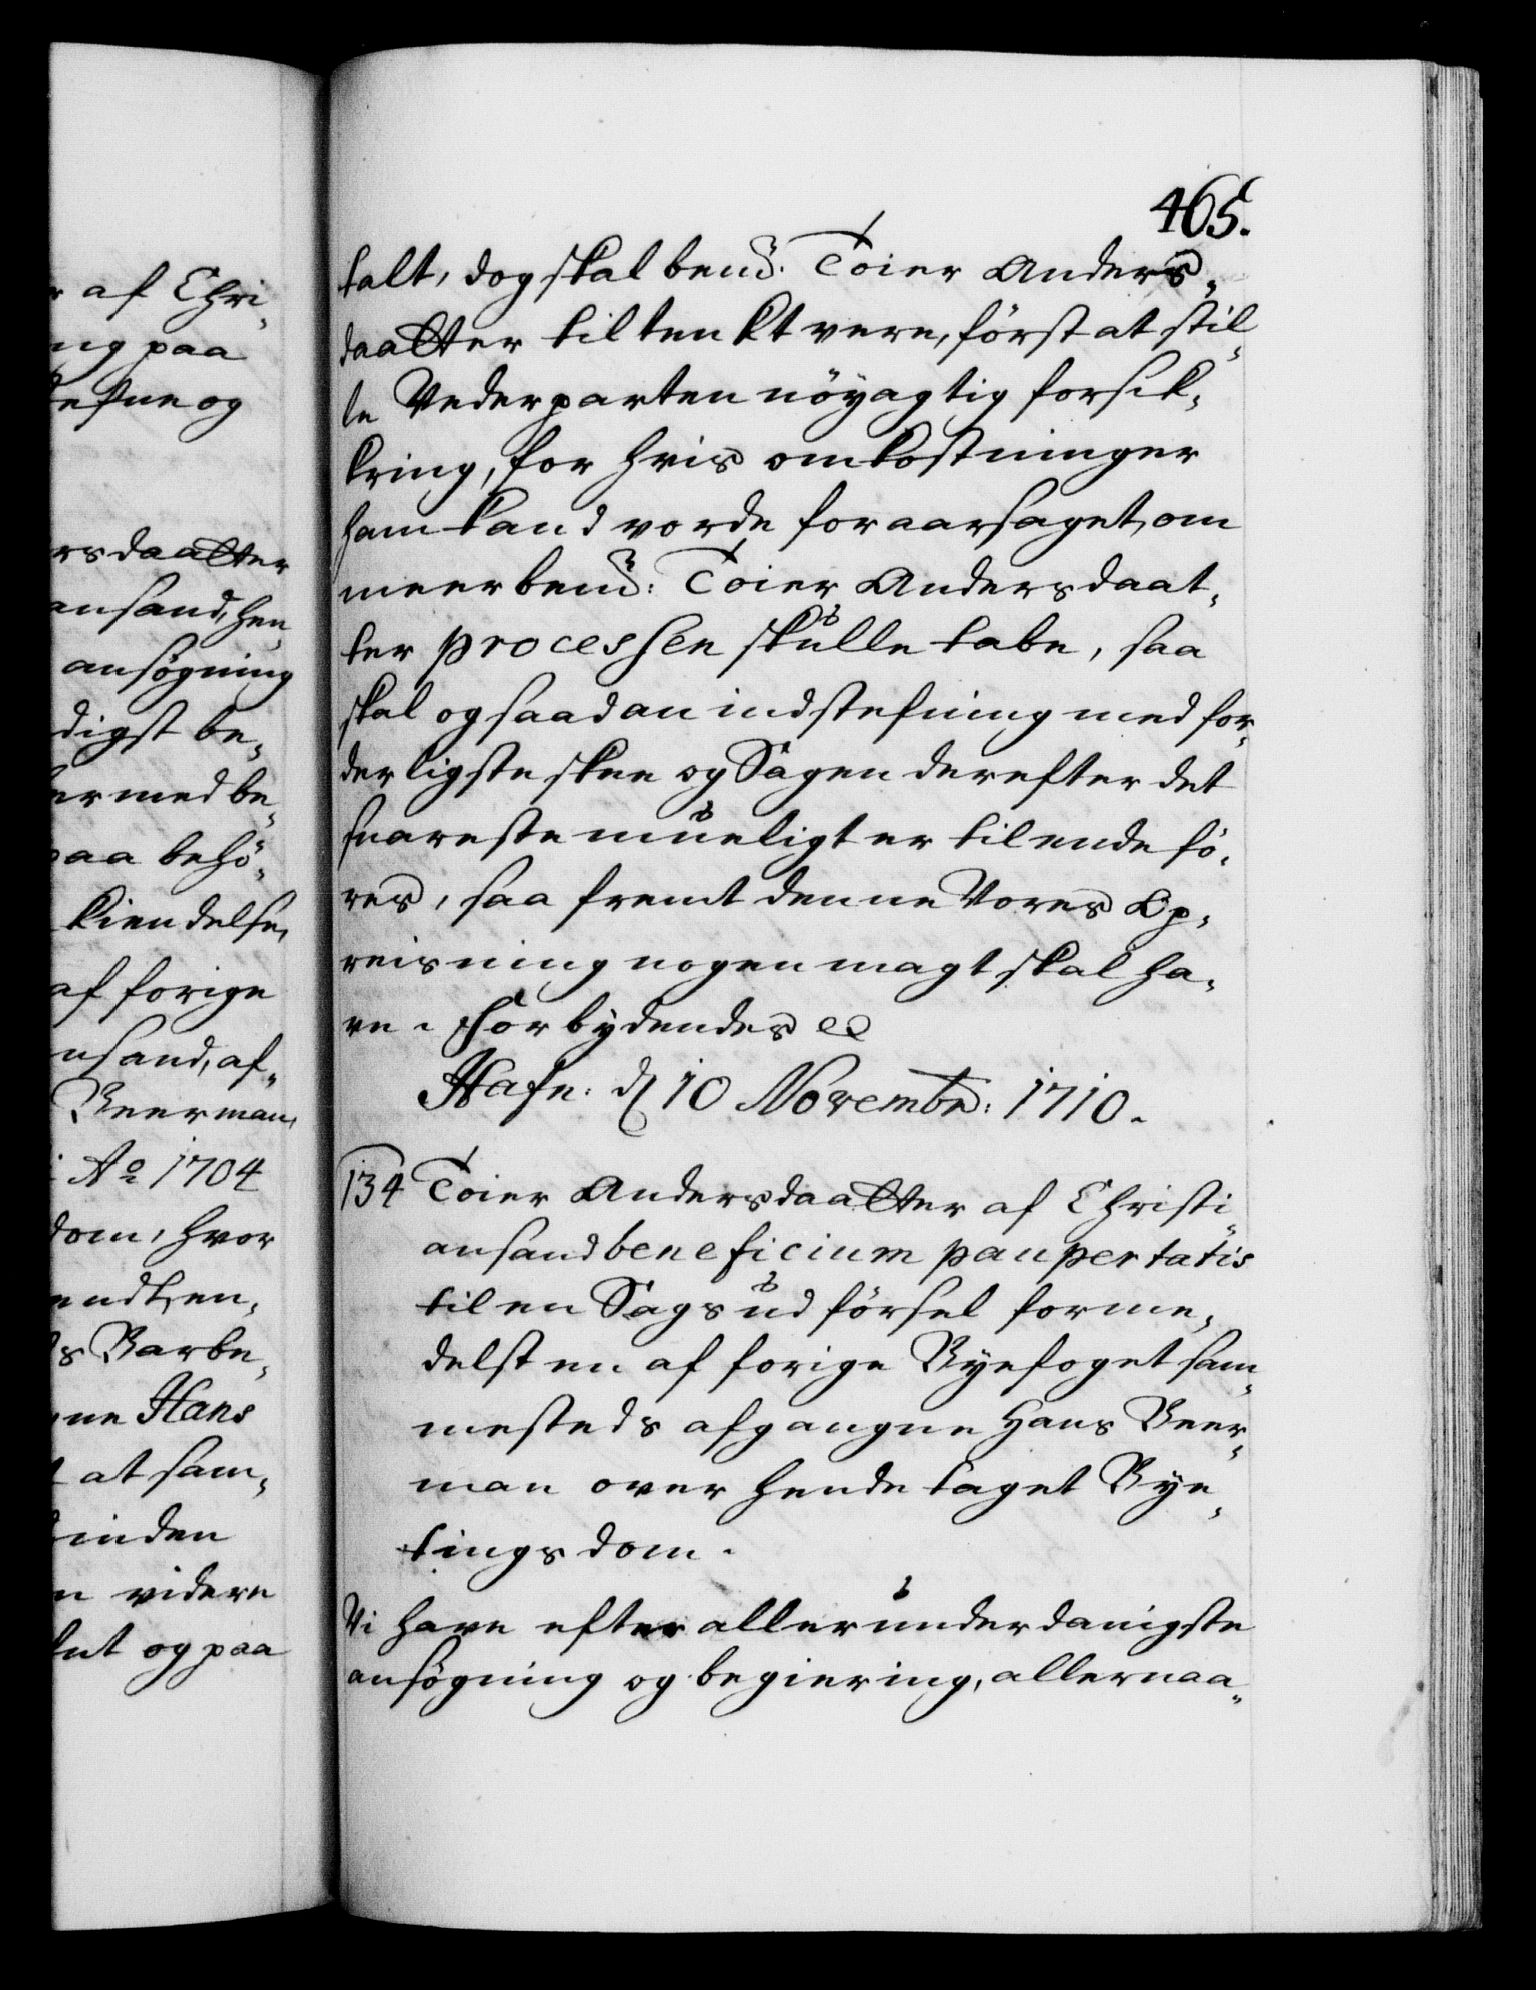 r af Chri,
ng paa
tefne og
rsdaatter
ansand, hen,
ansøgning
digst be,
er med be,
paa behö,
kiendelse,
af forige
nsand, af,
Beerman,
: Aº 1704
dom, hvor
endt, en,
s Barbe,
ne Hans
t at sam,
inden
n videre
tet og paa
465.
talt, dog skal bemd: Toier Anders,
daatter tiltenkt vere, först at stil,
le Vederparten nöyagtig forsik,
kring, for hvis omkostninger
ham kand vorde foraarsaget, om
meerbemd: Toier Andersdaat,
ter processen skulle tabe, saa
skal og saadan indstefning med for,
derligste skee og Sagen derefter det
snareste mueligt er til ende fö,
res, saa fremt denne Vores Op,
reisning nogen magt skal ha,
ve. Forbydendes etc
Hafn: d 10 Novembr: 1710.
134 Toier Andersdaatter af Christi,
ansand beneficium paupertatis
til en Sags udförsel forme,
delst en af forige Byefoget sam,
mesteds afgangne Hans Beer,
man over hende taget Bye,
tings dom.
Vi have efter allerunderdanigste
ansögning og begiering, allernaa,